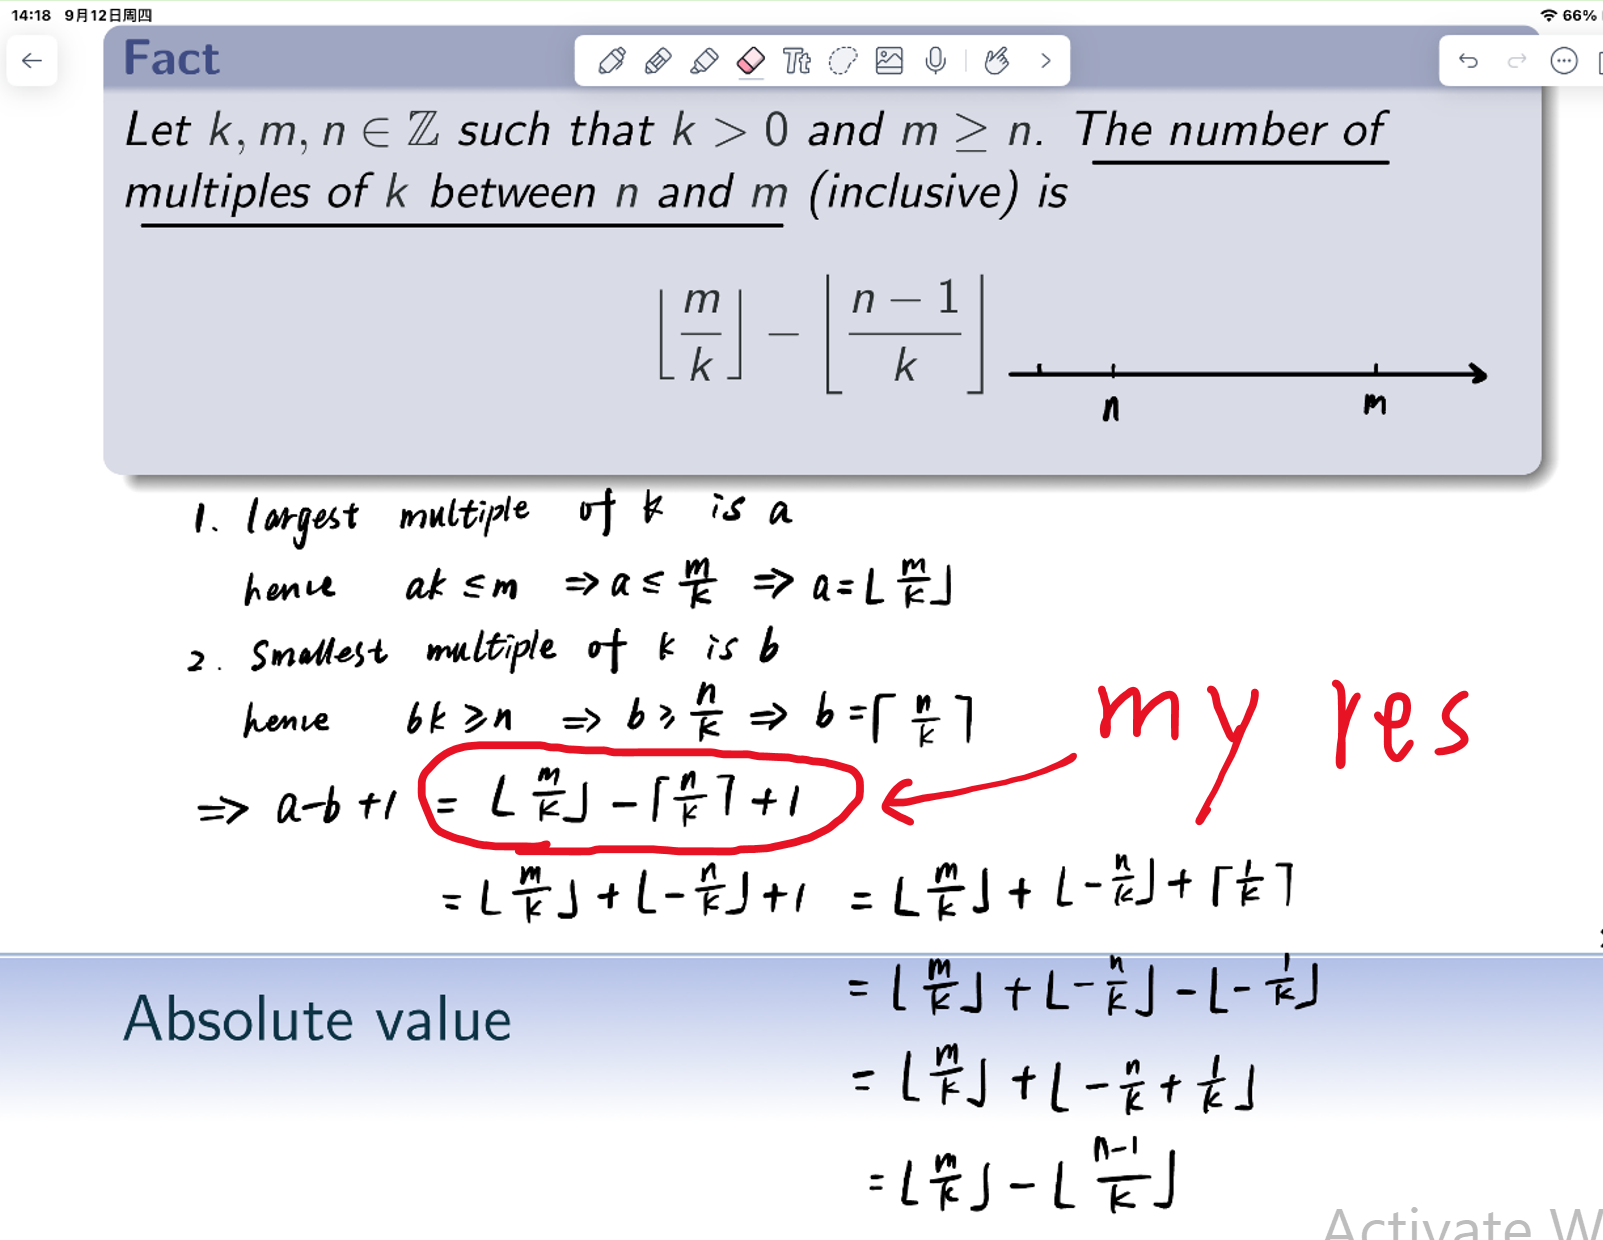 14:18 9月12日周四 66%
Fact
Tt
Let k, m, n ∈ ℤ such that k > 0 and m ≥ n. The number of
multiples of k between n and m (inclusive) is
⌊m/k⌋ − ⌊(n − 1)/k⌋
n m
1. largest multiple of k is a
hence ak ≤ m ⇒ a ≤ m/k ⇒ a = ⌊m/k⌋
2. Smallest multiple of k is b
hence bk ≥ n ⇒ b ≥ n/k ⇒ b = ⌈n/k⌉
my res
⇒ a-b+1 = ⌊m/k⌋ − ⌈n/k⌉ + 1
= ⌊m/k⌋ + ⌊−n/k⌋ + 1 = ⌊m/k⌋ + ⌊−n/k⌋ + ⌈1/k⌉
= ⌊m/k⌋ + ⌊−n/k⌋ − ⌊−1/k⌋
Absolute value
= ⌊m/k⌋ + ⌊−n/k + 1/k⌋
= ⌊m/k⌋ − ⌊(n-1)/k⌋
Activate W